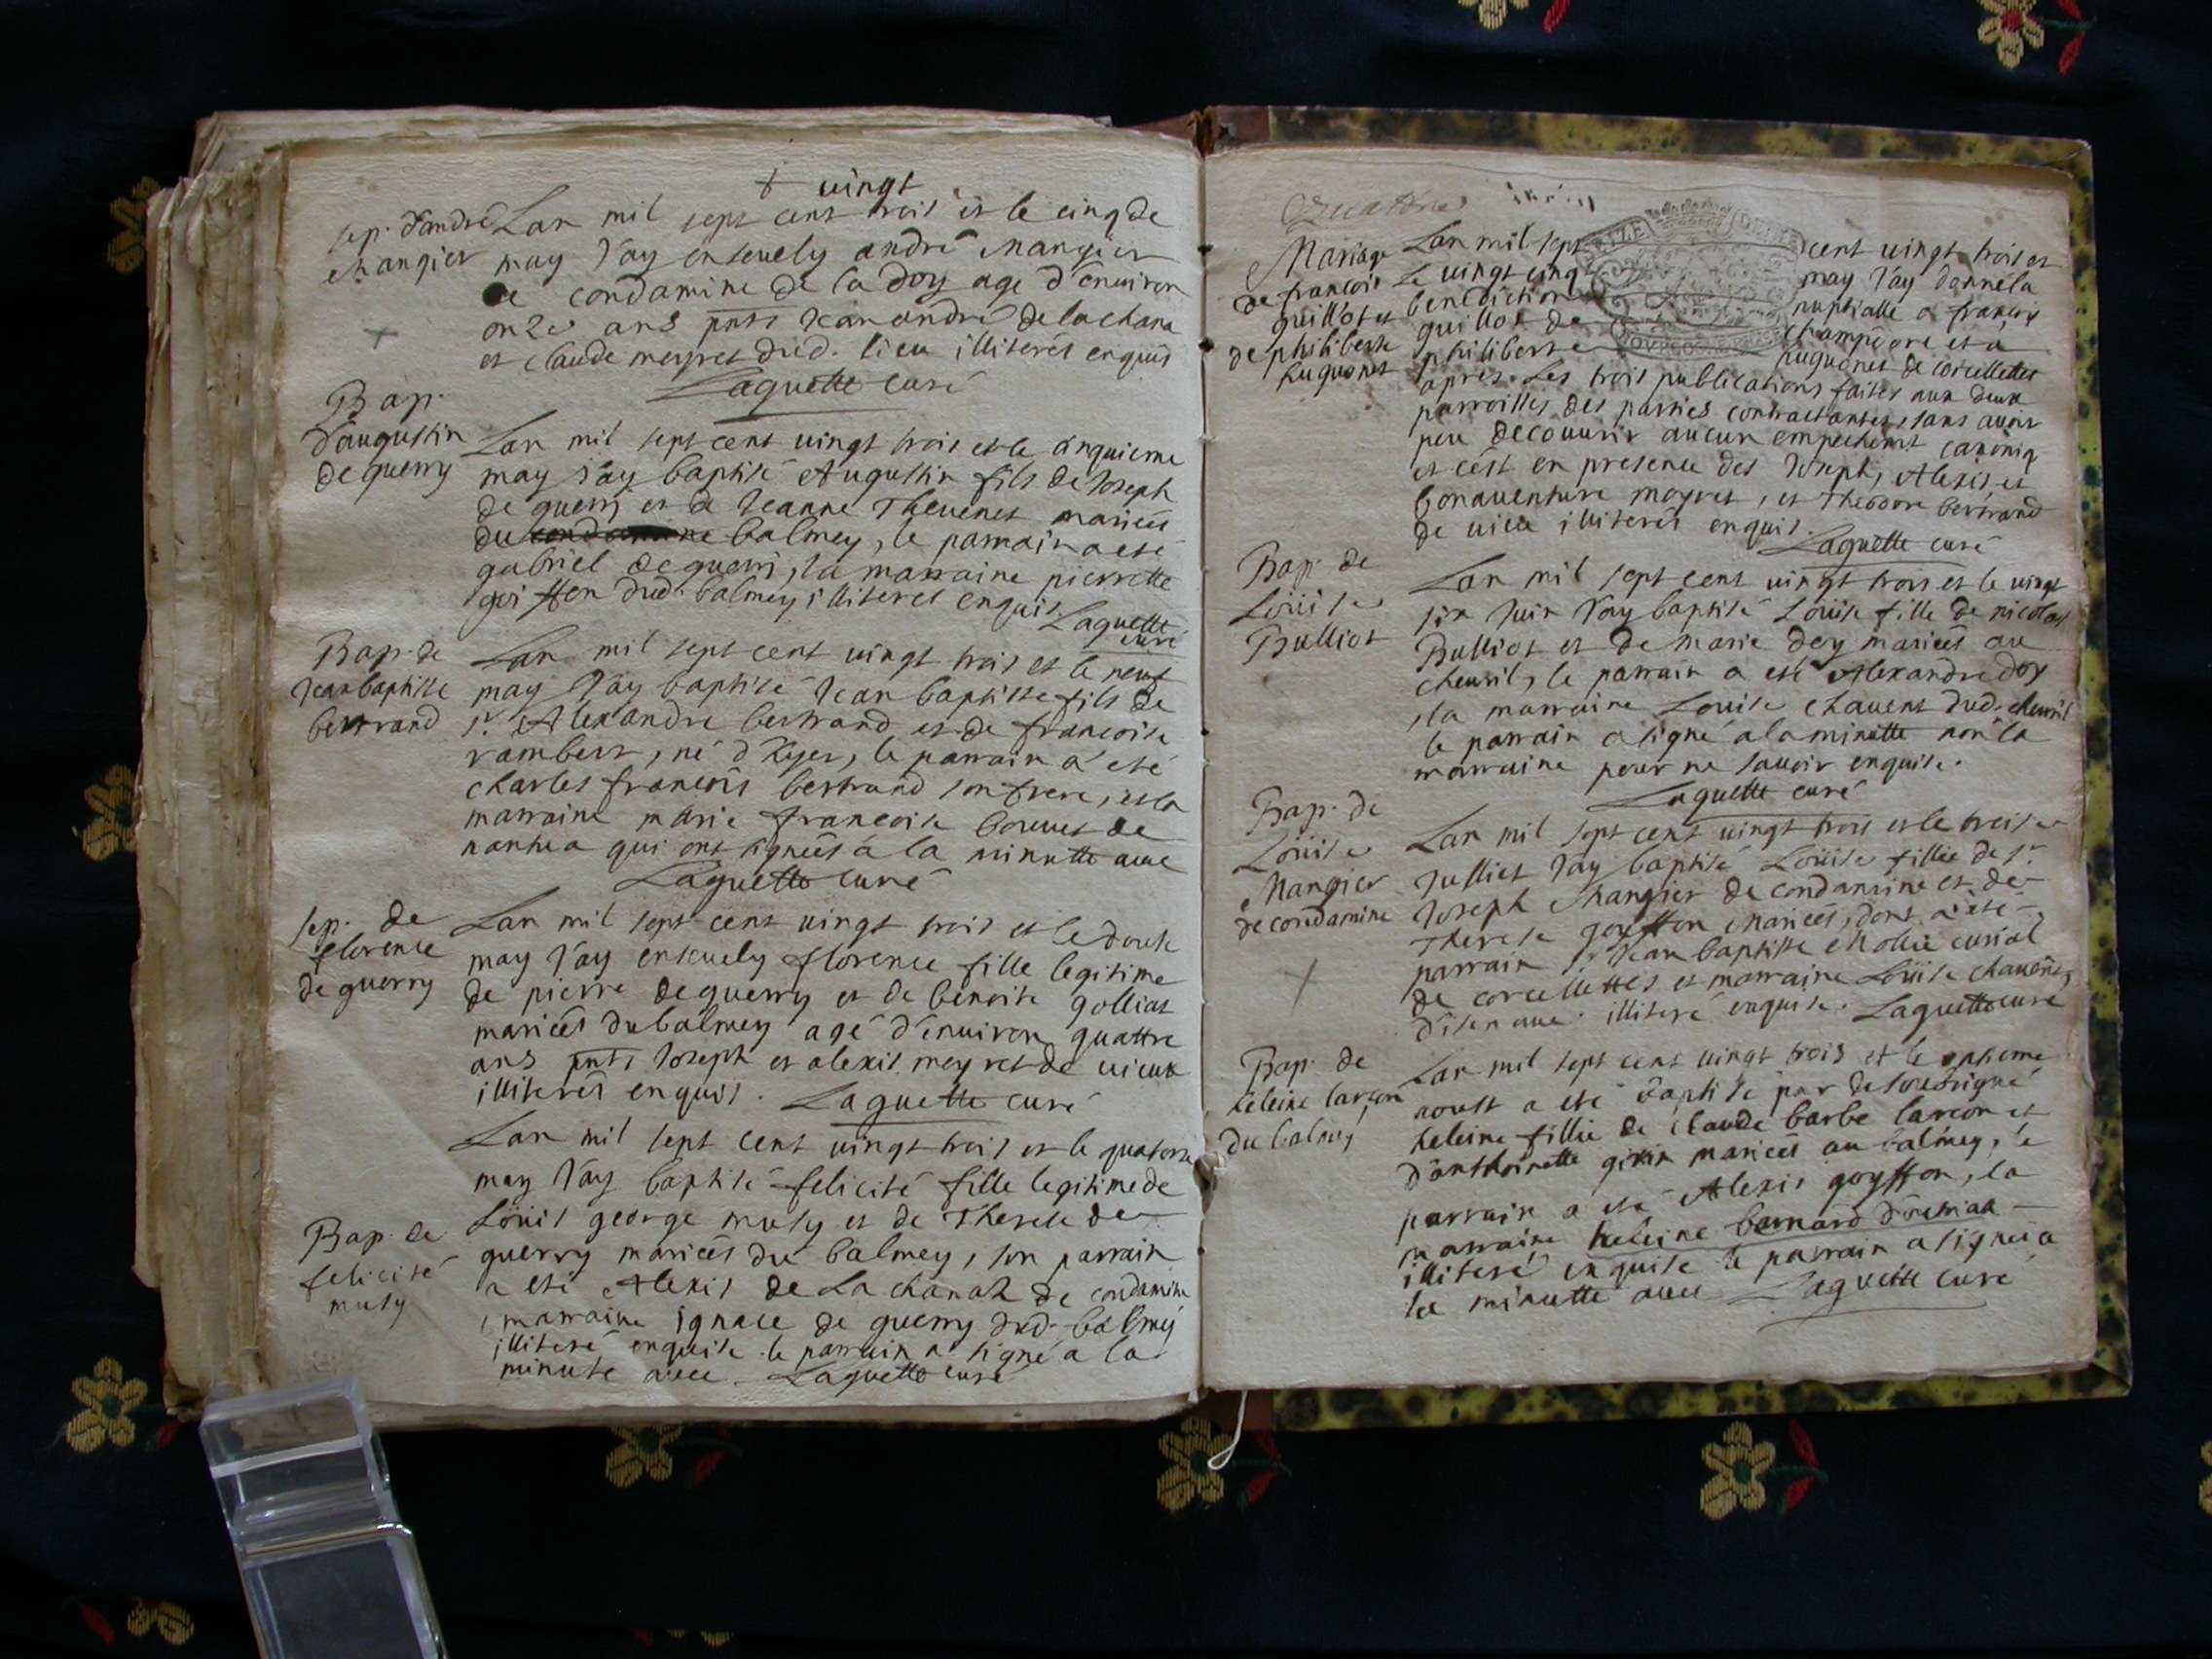 vingt
sep. d'andré
Mangier
Lan mil sept cent trois et le cinq de
may J'ay enseuely andré Mangier
de condamine de la doy age d'enuiron
onze ans pnts Jean andré de la chana
et claude meyret dud. lieu illiterés enquis
Laguette curé
Bap.
d'augustin
de guerry
Lan mil sept cent vingt trois et le cinquieme
may J'ay baptisé Augustin fils de Joseph
de guerri et de Jeanne Theuenet mariées
du condamine balmey, le parrain a esté
gabriel de guerri, la marraine pierrette
goiffon dud. balmey illiteres enquis
Laguette
curé
Bap. de
Jean baptiste
bertrand
Lan mil sept cent vingt trois et le neuf
may J'ay baptisé Jean baptiste fils de
sr. Alexandre bertrand et de francoise
rambert, né d'hyer, le parrain a esté
charles francois bertrand son frere, et la
marraine marie francoise bouuet de
nantua qui ont signées á la minutte auec
Laguette curé
sep. de
florence
de guerry
Lan mil sept cent vingt trois et le douse
may J'ay enseuely florence fille legitime
de pierre de guerry et de benoite golliat
mariées du balmey agé d'enuiron quattre
ans pnts Joseph et alexis meyret de uieux
illiterés enquis. Laguette curé
Bap. de
felicité
musy
Lan mil sept cent vingt trois et le quatorse
may J'ay baptisé felicité fille legitime de
Loüis george musy et de Therese de
guerry mariées du balmey, son parrain
a esté Alexis de La chanaz de condamine
, marraine ignace de guerry dud. balmey
illiteré enquise le parrain a signé a la
minute auec. Laguette curé
Quattre
Mariage
de francois
guillot et
de philiberte
huguonet
Lan mil sept cent vingt trois et
le vingt cinq may J'ay donné la
benediction nuptialle a francois
guillot de champdore et a
philiberte huguonet de corcellettes
apres les trois publications faites aux deux
parroisses des parties contractantes, sans avoir
peu decouurir aucun empechemt canoniq
et c'est en presence des Joseph, Alexis et
bonauenture meyret, et Theodore bertrand
de uieu illiterés enquis.
Laguette curé
Bap. de
Loüise
Bulliot
Lan mil sept cent vingt trois et le vingt
six Juin J'ay baptisé Loüise fille de nicolas
Bulliot et de marie doy mariées au
cheuril, le parrain a esté Alexandre doy
, la marraine Louise chauent dud. cheuril
le parrain a signé a la minutte non la
marraine pour ne sauoir enquise.
Laguette curé
Bap. de
Loüise
Mangier
de condamine
Lan mil sept cent vingt trois et le treise
Julliet J'ay baptisé Loüise fillie de sr.
Joseph Mangier de condamine et de
Therese goyffon mariées, dont a esté
parrain sr. Jean baptiste Mollie curial
de corcellettes et marraine Loüise chauent,
illiteré enquise. Laguette curé
Bap. de
heleine larcon
du balmey
Lan mil sept cent vingt trois et le septieme
aoust a esté baptisé par de soubsigné
heleine fillie de claude barbe larcon et
d'anthoinette mariees au balmey, le
parrain a esté Alexis goyffon, la
marraine heleine bernard
illiteré enquise le parrain a signé a
la minutte auec Laguette curé